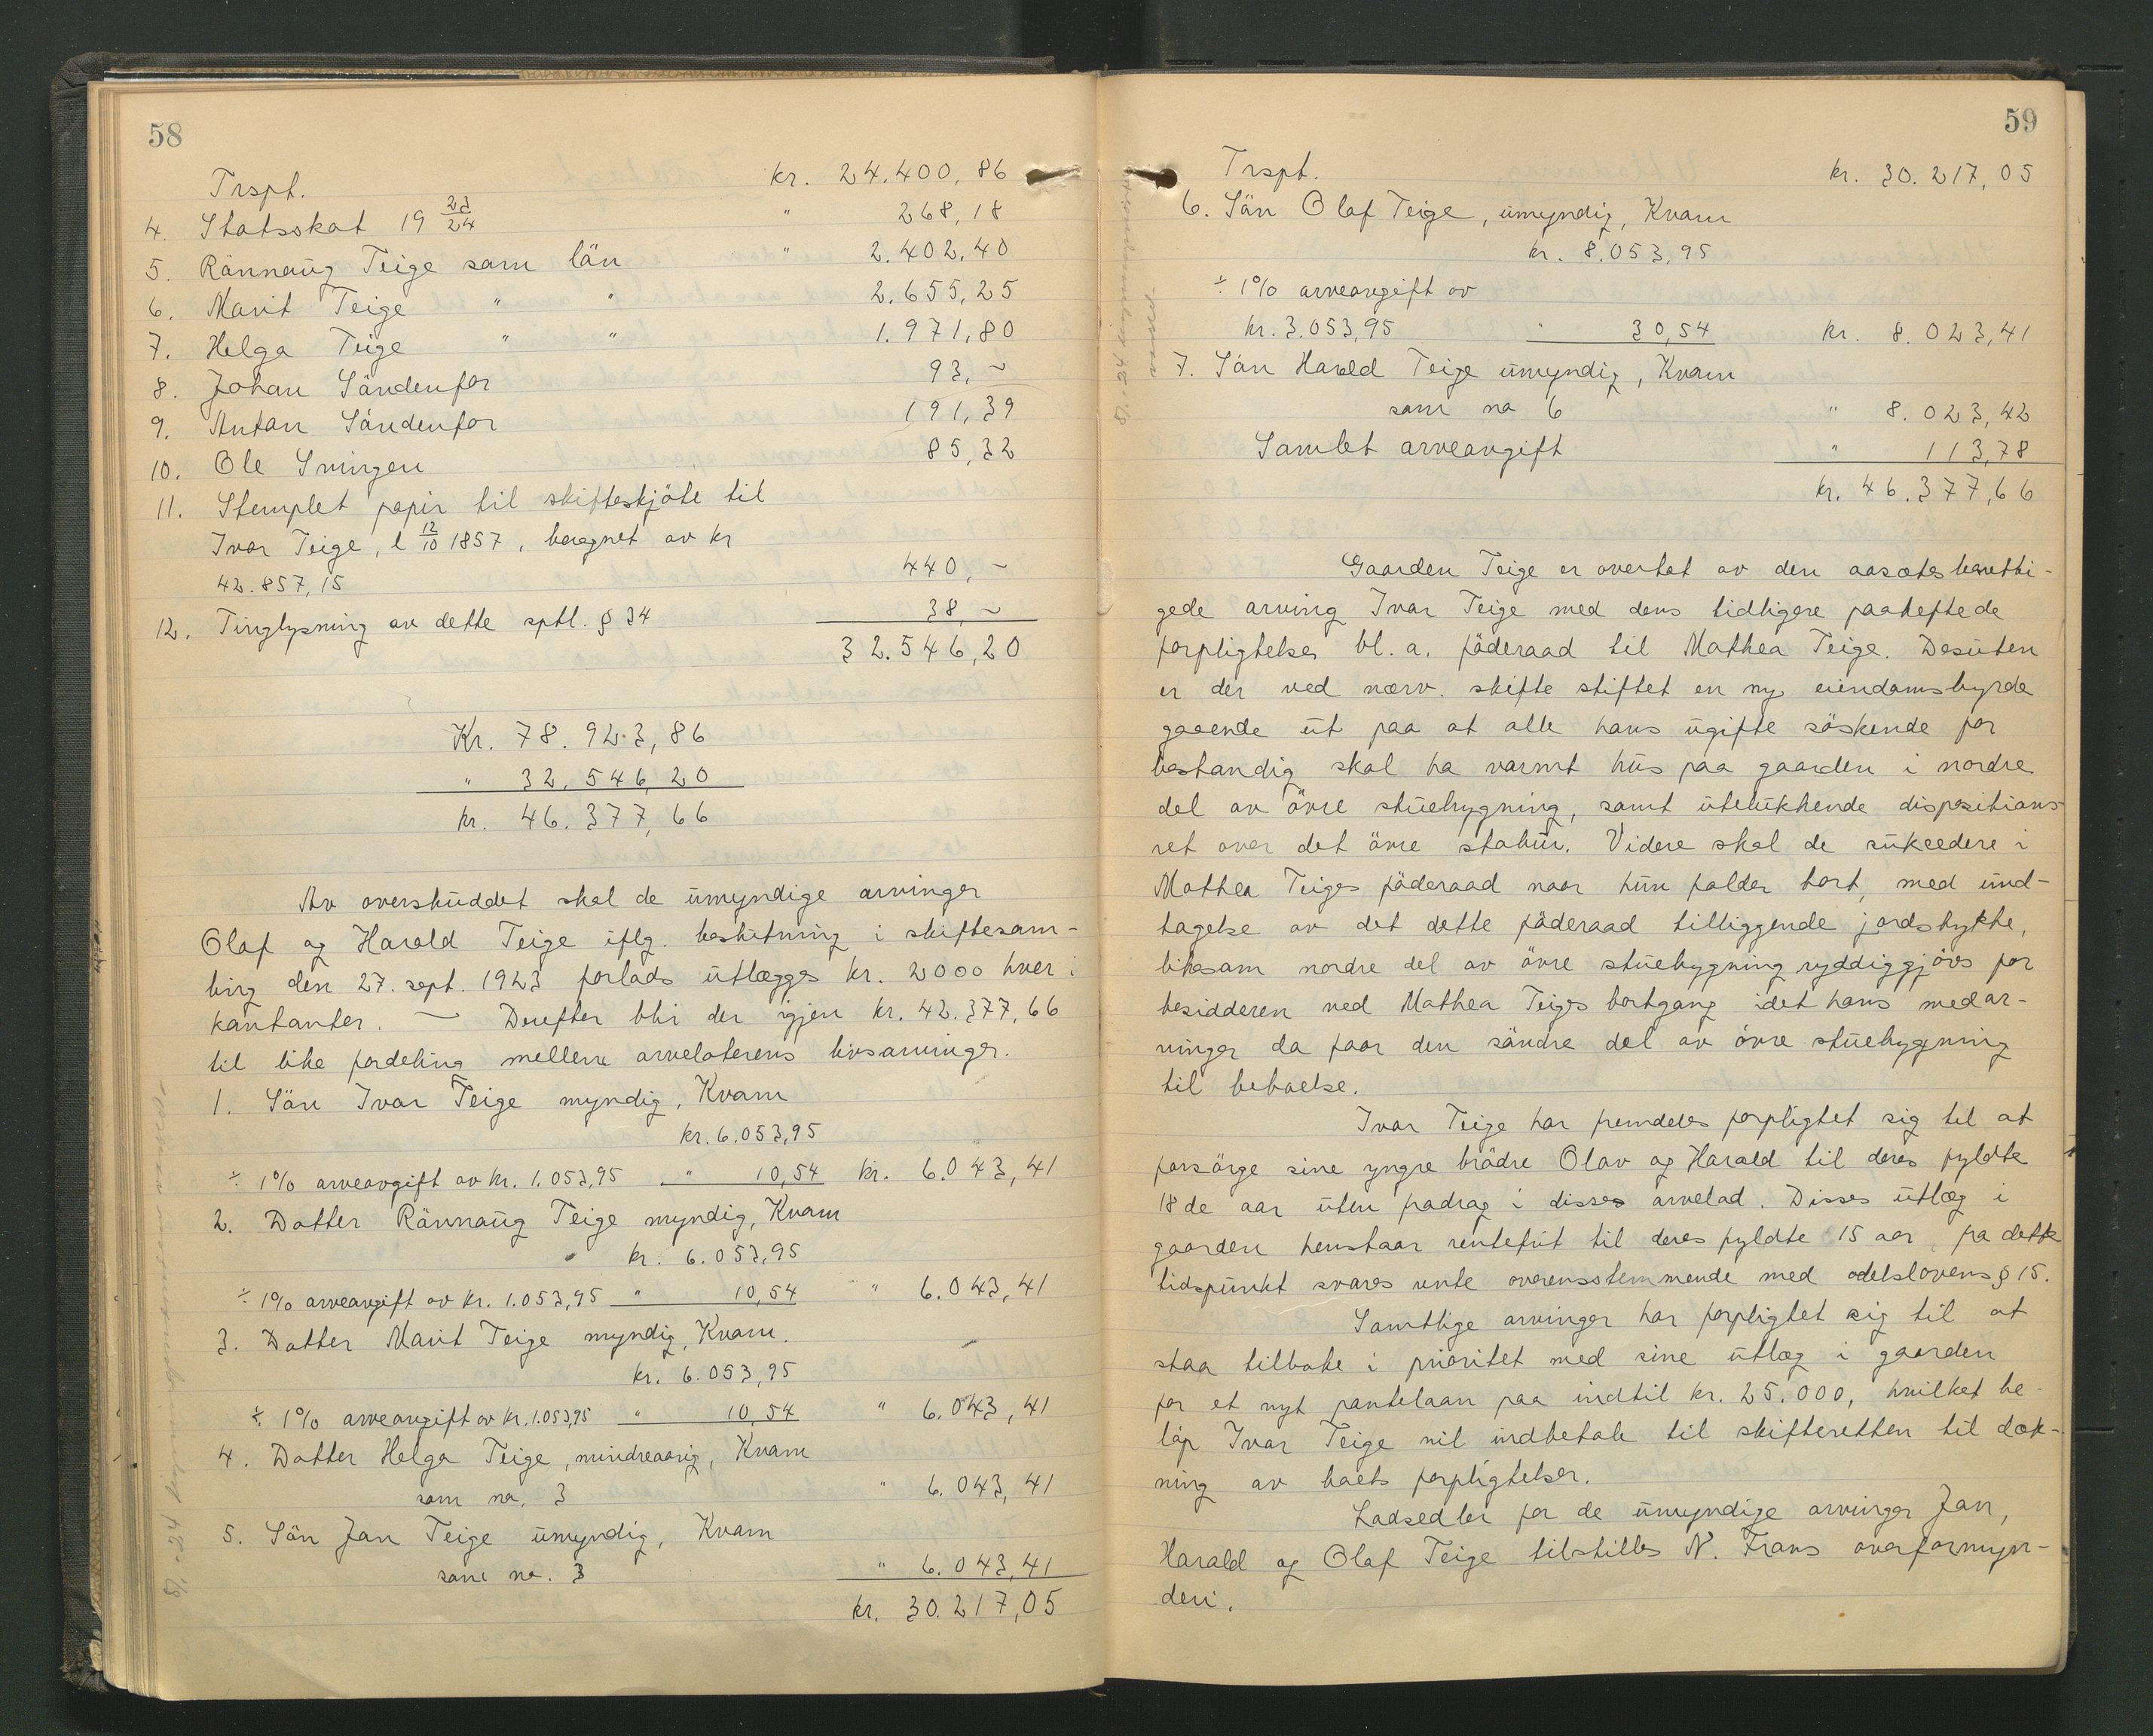 58
Trspt. kr. 24.400,86
4. Statsskat 19 23/24 " 268,18
5. Rönnaug Teige som lön " 2.402,40
6. Marit Teige " " 2.655,25
7. Helga Teige " " 1.971,80
8. Johan Söndenfor 93,-
9. Anton Söndenfor 191,39
10. Ole Svingen 85,32
11. Stemplet papir til skifteskjöte til
Ivar Teige, l 12/10 1857, beregnet av kr
42.857,15 440,-
12. Tinglysning av dette sptl. § 34 38,-
32.546,20
Kr. 78.923,86
" 32.546,20
kr. 46.377,66
Av overskuddet skal de umyndige arvinger
Olaf og Harald Teige iflg. beslutning i skiftesam-
ling den 27. sept. 1923 forlods utlægges kr. 2000 hver i
kontanter. — Derefter blir der igjen kr. 42.377,66
til like fordeling mellem arvelaterens livsarvinger.
1. Sön Ivar Teige myndig, Kvam
kr. 6.053,95
÷ 1% arveavgift av kr. 1.053,95 " 10,54 kr. 6.043,41
2. Datter Rönnaug Teige myndig, Kvam
kr. 6.053,95
÷ 1% arveavgift av kr. 1.053,95 " 10,54 " 6.043,41
3. Datter Marit Teige myndig, Kvam.
kr. 6.053,95
÷ 1% arveavgift av kr. 1.053,95 " 10,54 " 6.043,41
4. Datter Helga Teige, mindreaarig, Kvam
som no. 3 " 6.043,41
5. Sön Jon Teige umyndig, Kvam
som no. 3 " 6.043,41
kr. 30.217,05
59
Trspt. kr. 30.217,05
6. Sön Olaf Teige, umyndig, Kvam
kr. 8.053,95
÷ 1% arveavgift av
kr. 3.053,95 " 30,54 kr. 8.023,41
7. Sön Harald Teige umyndig, Kvam
som no 6 " 8.023,42
Samlet arveavgift " 113,78
kr. 46.377,66
Gaarden Teige er overtat av den aasætesberetti-
gede arving Ivar Teige med dens tidligere paaheftede
forpligtelser bl. a. föderaad til Mathea Teige. Desuten
er der ved nærv. skifte stiftet en ny eiendomsbyrde
gaaende ut paa at alle hans ugifte söskende for
bestandig skal ha varmt hus paa gaarden i nordre
del av övre stuebygning, samt utelukkende dispositions-
ret over det övre stabur. Videre skal de sukcedere i
Mathea Teiges föderaad naar hun falder bort, med und-
tagelse av det dette föderaad tilliggende jordstykke,
likesom nordre del av övre stuebygning ryddiggjöres for
besidderen ved Mathea Teiges bortgang idet hans medar-
vinger da faar den söndre del av övre stuebygning
til beboelse.
Ivar Teige har fremdeles forpligtet sig til at
forsörge sine yngre brödre Olav og Harald til deres fyldte
18de aar uten fradrag i disses arvelod. Disses utlæg i
gaarden henstaar rentefrit til deres fyldte 15 aar, fra dette
tidspunkt svares rente overensstemmende med odelslovens § 15.
Samtlige arvinger har forpligtet sig til at
staa tilbake i prioritet med sine utlæg i gaarden
for et nyt pantelaan paa indtil kr. 25.000, hvilket be-
löp Ivar Teige vil indbetale til skifteretten til dæk-
ning av boets forpligtelser.
Lodsedler for de umyndige arvinger Jon,
Harald og Olaf Teige tilstilles N. Frons overformyn-
deri.